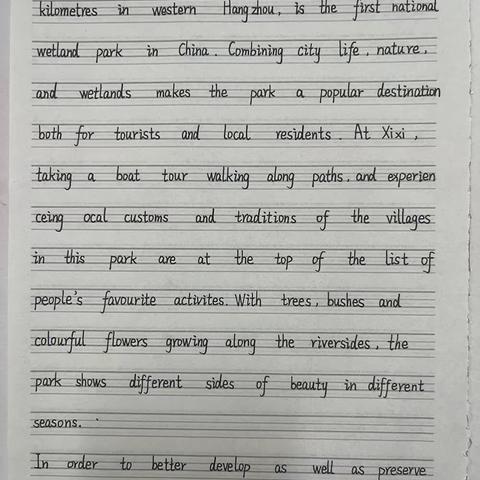 kilometres in western Hang zhou, is the first national
wetland park in China. Combining city life, nature,
and wetlands makes the park a popular destination
both for tourists and local residents. At Xixi,
taking a boat tour walking along paths, and experien
ceing ocal customs and traditions of the villages
in this park are at the top of the list of
people's favourite activites. With trees, bushes and
colourful flowers growing along the riversides, the
park shows different sides of beauty in different
seasons.
In order to better develop as well as preserve